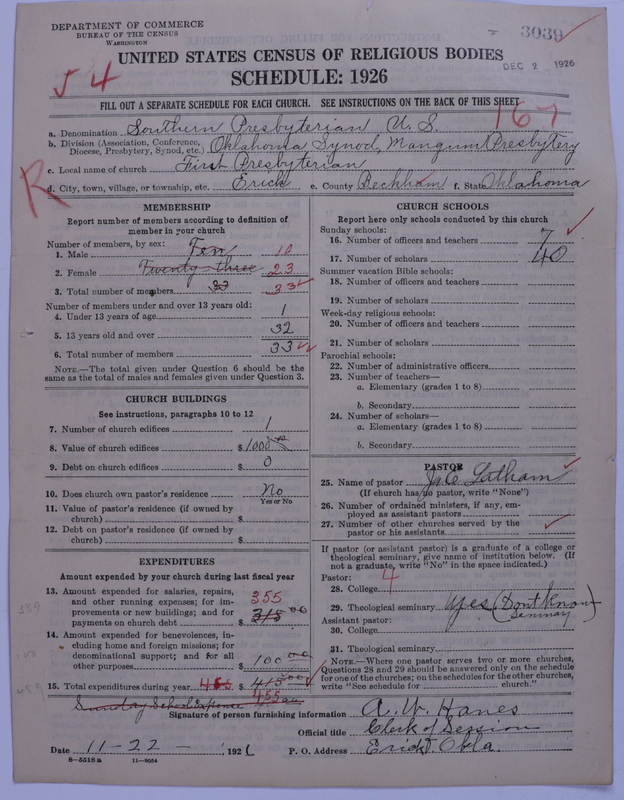 DEPARTMENT OF COMMERCE
BUREAU OF THE CENSUS
WASHINGTON
3039
DEC 2 1926
UNITED STATES CENSUS OF RELIGIOUS BODIES
SCHEDULE: 1926
54
FILL OUT A SEPARATE SCHEDULE FOR EACH CHURCH. SEE INSTRUCTIONS ON THE BACK OF THIS SHEET
167
a. Denomination Southern Presbyterian U. S.
b. Division (Association, Conference, Diocese, Presbytery, Synod, etc.) Oklahoma Synod, Mangum Presbytery
c. Local name of church First Presbyterian
R
d. City, town, village, or township, etc. Erick e. County Beckham f. State Oklahoma
MEMBERSHIP
Report number of members according to definition of
member in your church
Number of members, by sex:
1. Male Ten 10
2. Female Twenty-three 23
3. Total number of members 33 33
Number of members under and over 13 years old:
4. Under 13 years of age 1
5. 13 years old and over 32
6. Total number of members 33
NOTE.—The total given under Question 6 should be the
same as the total of males and females given under Question 3.
CHURCH BUILDINGS
See instructions, paragraphs 10 to 12
7. Number of church edifices 1
8. Value of church edifices $ 1000 00
9. Debt on church edifices $ 0
10. Does church own pastor's residence No
Yes or No
11. Value of pastor's residence (if owned by
church) $
12. Debt on pastor's residence (if owned by
church) $
EXPENDITURES
Amount expended by your church during last fiscal year
13. Amount expended for salaries, repairs,
and other running expenses; for im-
provements or new buildings; and for
payments on church debt $ 315 00
355
389
14. Amount expended for benevolences, in-
cluding home and foreign missions; for
denominational support; and for all
other purposes $ 100 00
100
15. Total expenditures during year 455 $ 415 00
489
Sunday School Expense 455 00
CHURCH SCHOOLS
Report here only schools conducted by this church
Sunday schools:
16. Number of officers and teachers 7
17. Number of scholars 40
Summer vacation Bible schools:
18. Number of officers and teachers
19. Number of scholars
Week-day religious schools:
20. Number of officers and teachers
21. Number of scholars
Parochial schools:
22. Number of administrative officers
23. Number of teachers—
a. Elementary (grades 1 to 8)
b. Secondary
24. Number of scholars—
a. Elementary (grades 1 to 8)
b. Secondary
PASTOR
25. Name of pastor Latham
(If church has no pastor, write "None")
26. Number of ordained ministers, if any, em-
ployed as assistant pastors
27. Number of other churches served by the
pastor or his assistants
If pastor (or assistant pastor) is a graduate of a college or
theological seminary, give name of institution below. (If
not a graduate, write "No" in the space indicated.)
Pastor:
28. College 4
29. Theological seminary Yes (Dont know
Seminary)
Assistant pastor:
30. College
31. Theological seminary
NOTE.—Where one pastor serves two or more churches,
Questions 28 and 29 should be answered only on the schedule
for one of the churches; on the schedules for the other churches,
write "See schedule for church."
Signature of person furnishing information A. W. Hanes
Official title Clerk of Session
Date 11-22-, 1926 P. O. Address Erick Okla
8—5518a 11—9034